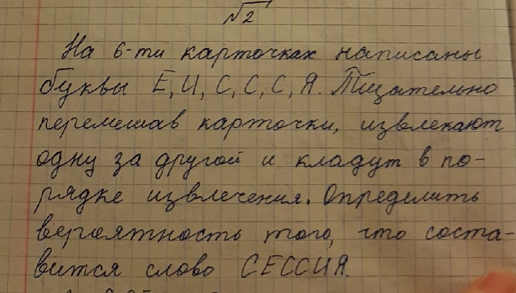 √2
На 6-ти карточках написаны
буквы Е, И, С, С, С, Я. Тщательно
перемешав карточки, извлекают
одну за другой и кладут в по-
рядке извлечения. Определить
вероятность того, что соста-
вится слово СЕССИЯ.